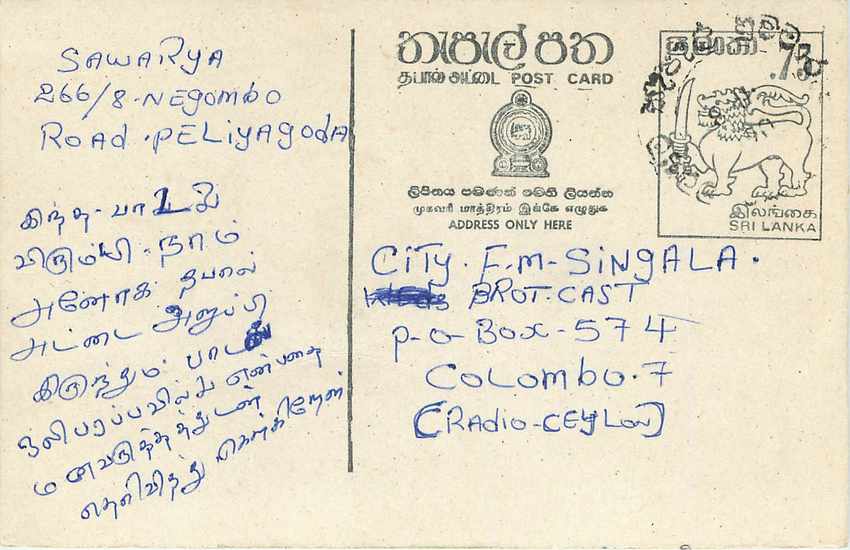 SAWARYA
266/8-NEGOMBO
ROAD.PELIYAGODA
இந்த-பாடல்
விரும்பி-நாம்
அனேக தபால்
அட்டை அனுப்பி
இருந்தும் பாடல்
ஒலிபரப்பவில்லை என்பதை
மனவருத்தத்துடன்
தெரிவித்து கொள்கிறேன்
තැපැල් පත
தபால் அட்டை POST CARD
ලිපිනය පමණක් මෙහි ලියන්න
முகவரி மாத்திரம் இங்கே எழுதுக
ADDRESS ONLY HERE
ශ්‍රී ලංකා .75
இலங்கை
SRI LANKA
CITY.F.M-SINGALA.
BROT.CAST
P-O-BOX-574
COLOMBO.7
[RADIO-CEYLON]